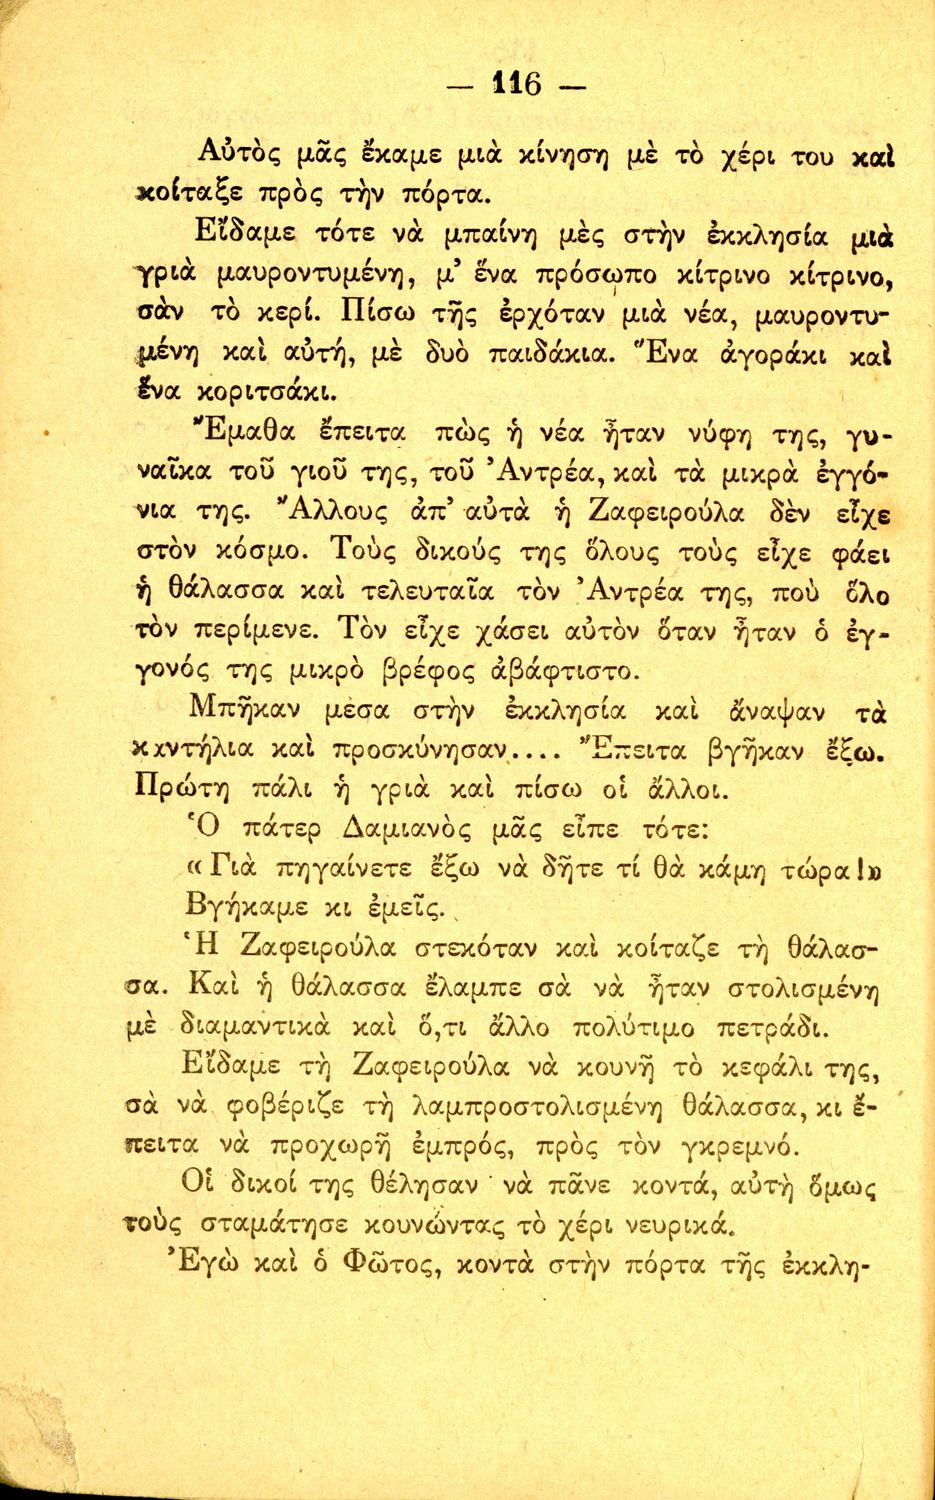 — 116 —
Αὐτὸς μᾶς ἔκαμε μιὰ κίνηση μὲ τὸ χέρι του καὶ
κοίταξε πρὸς τὴν πόρτα.
Εἴδαμε τότε νὰ μπαίνη μὲς στὴν ἐκκλησία μιὰ
γριὰ μαυροντυμένη, μ' ἕνα πρόσωπο κίτρινο κίτρινο,
σὰν τὸ κερί. Πίσω τῆς ἐρχόταν μιὰ νέα, μαυροντυ-
μένη καὶ αὐτή, μὲ δυὸ παιδάκια. Ἕνα ἀγοράκι καὶ
ἕνα κοριτσάκι.
Ἔμαθα ἔπειτα πὼς ἡ νέα ἦταν νύφη της, γυ-
ναῖκα τοῦ γιοῦ της, τοῦ Ἀντρέα, καὶ τὰ μικρὰ ἐγγό-
νια της. Ἄλλους ἀπ' αὐτὰ ἡ Ζαφειρούλα δὲν εἶχε
στὸν κόσμο. Τοὺς δικούς της ὅλους τοὺς εἶχε φάει
ἡ θάλασσα καὶ τελευταῖα τὸν Ἀντρέα της, ποὺ ὅλο
τὸν περίμενε. Τὸν εἶχε χάσει αὐτὸν ὅταν ἦταν ὁ ἐγ-
γονός της μικρὸ βρέφος ἀβάφτιστο.
Μπῆκαν μέσα στὴν ἐκκλησία καὶ ἄναψαν τὰ
καντήλια καὶ προσκύνησαν.... Ἔπειτα βγῆκαν ἔξω.
Πρώτη πάλι ἡ γριὰ καὶ πίσω οἱ ἄλλοι.
Ὁ πάτερ Δαμιανὸς μᾶς εἶπε τότε:
«Γιὰ πηγαίνετε ἔξω νὰ δῆτε τί θὰ κάμη τώρα!»
Βγήκαμε κι ἐμεῖς.
Ἡ Ζαφειρούλα στεκόταν καὶ κοίταζε τὴ θάλασ-
σα. Καὶ ἡ θάλασσα ἔλαμπε σὰ νὰ ἦταν στολισμένη
μὲ διαμαντικὰ καὶ ὅ,τι ἄλλο πολύτιμο πετράδι.
Εἴδαμε τὴ Ζαφειρούλα νὰ κουνῆ τὸ κεφάλι της,
σὰ νὰ φοβέριζε τὴ λαμπροστολισμένη θάλασσα, κι ἔ-
πειτα νὰ προχωρῆ ἐμπρός, πρὸς τὸν γκρεμνό.
Οἱ δικοί της θέλησαν νὰ πᾶνε κοντά, αὐτὴ ὅμως
τοὺς σταμάτησε κουνώντας τὸ χέρι νευρικά.
Ἐγὼ καὶ ὁ Φῶτος, κοντὰ στὴν πόρτα τῆς ἐκκλη-